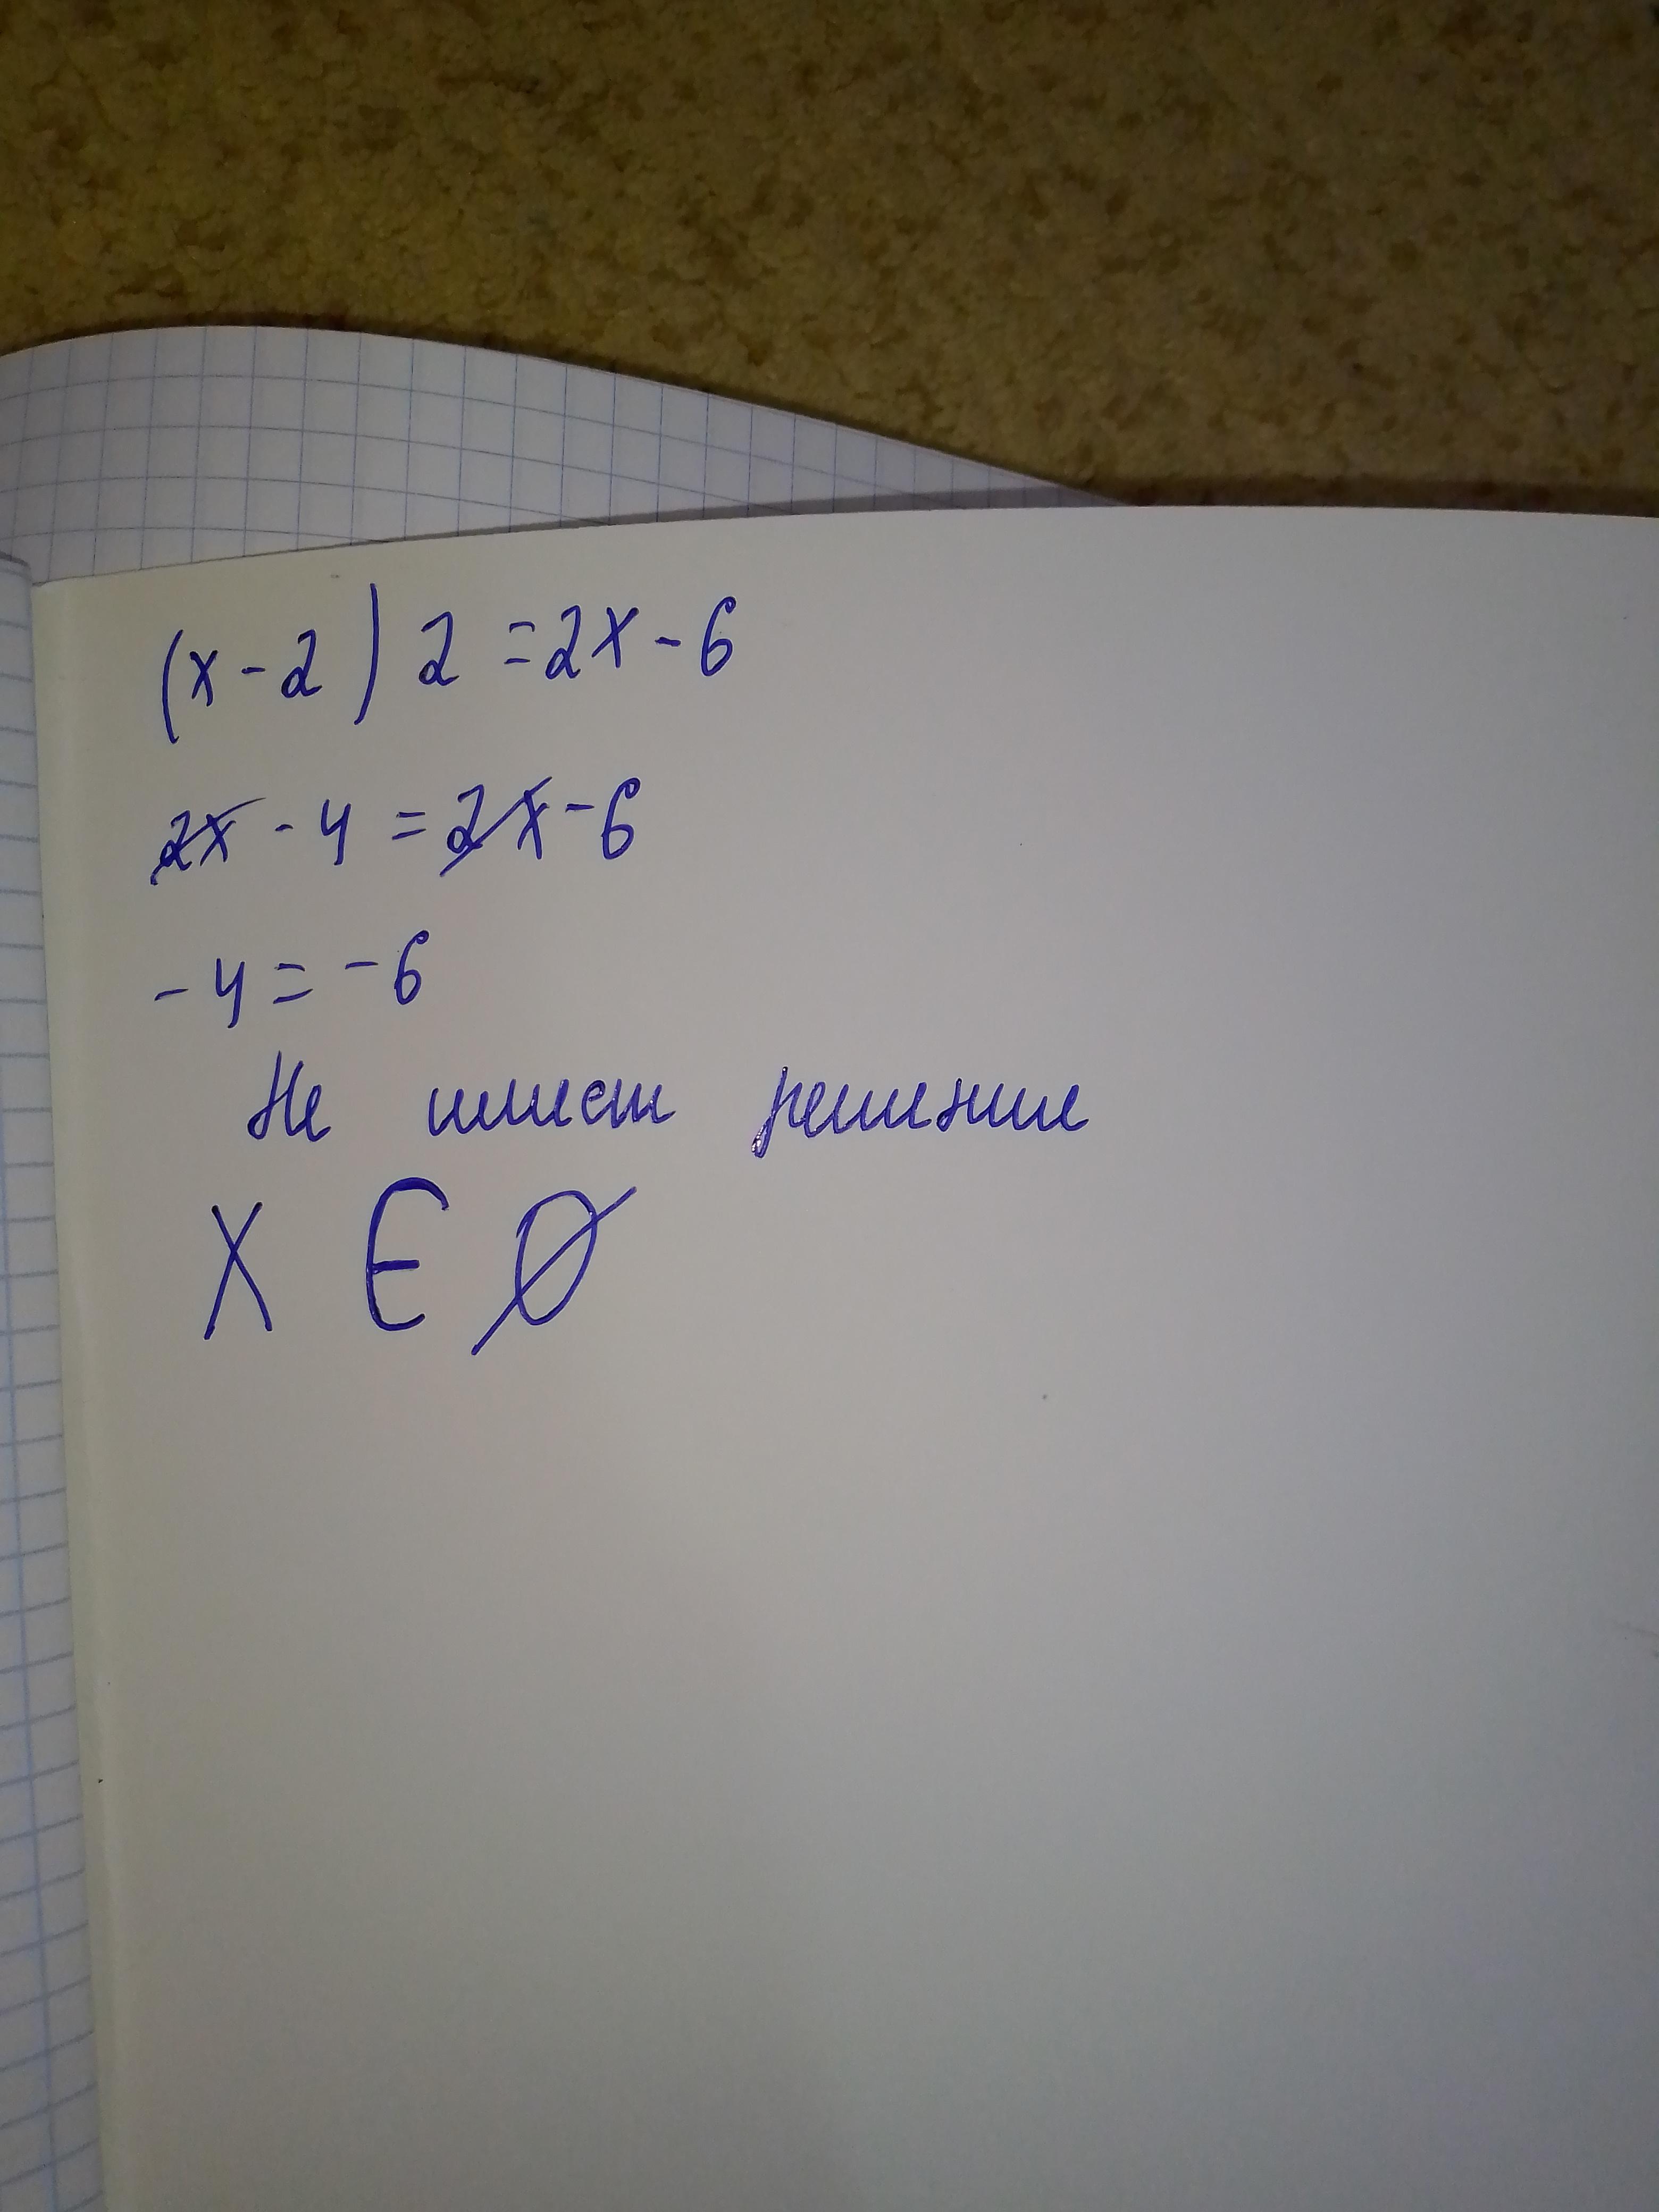 (x-2)2=2x-6
2x-4=2x-6
-4=-6
Не имеет решение
X ∈ Ø